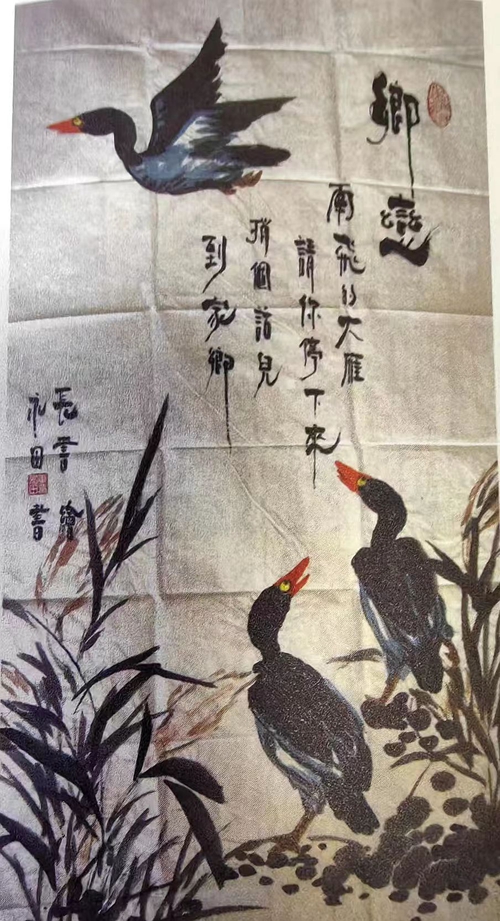 鄉戀
南飛的大雁
請你停下來
捎個話兒
到家鄉
長言繪
永田書